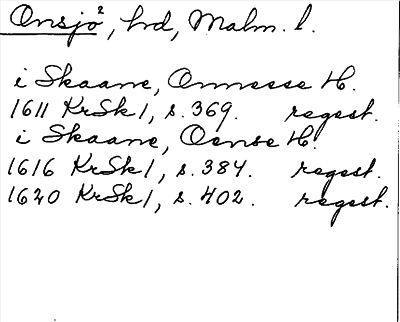 Onsjö², hrd, Malm. l.
i Skaane, Onnesse H.
1611 KrSk1, s. 369. regest.
i Skaane, Oense H.
1616 KrSk1, s. 384. regest.
1620 KrSk1, s. 402. regest.